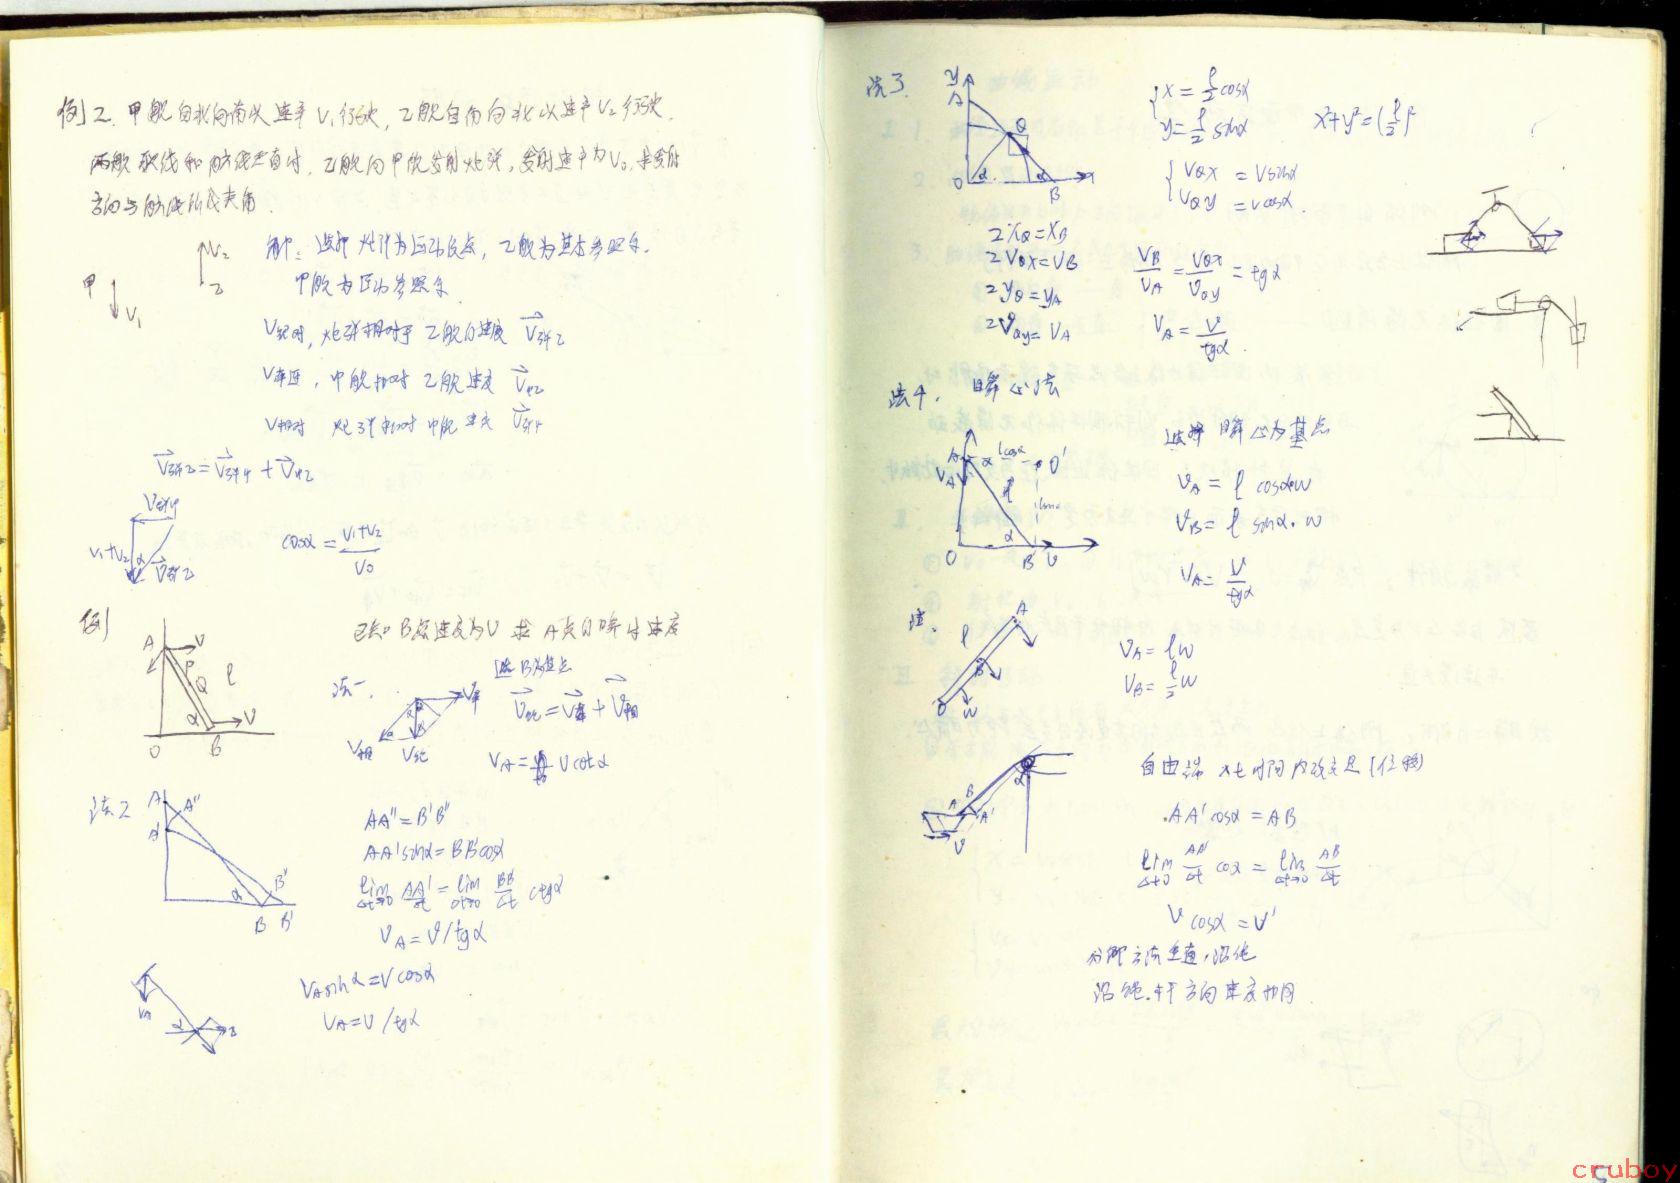 例2. 甲舰自北向南以速率V₁行驶, 乙舰自南向北以速率V₂行驶,
两舰联线和航线垂直时, 乙舰向甲舰发射炮弹, 发射速率为V₀, 求发射
方向与航线所成夹角.
V₂
乙
甲
V₁
解: 选择炮弹为运动质点, 乙舰为基本参照系.
甲舰为运动参照系
V绝对, 炮弹相对于乙舰的速度 V弹乙
V牵连, 甲舰相对乙舰速度 V甲乙
V相对 炮弹相对甲舰速度 V弹甲
V弹乙 = V弹甲 + V甲乙
V弹甲
V₁+V₂
α
V弹乙
cosα = (V₁+V₂)/V₀
例
已知B点速度为V 求A点的瞬时速度
A
V
P
Q
l
α
V
O
B
法一.
选B为基点
V绝 = V牵 + V相
V牵
V相
V绝
V_A = V cotα
法2
A
A''
A'
α
B''
B
B'
AA'' = B'B''
AA'sinα = BB'cosα
lim Δt→0 AA'/Δt = lim Δt→0 BB'/Δt ctgα
V_A = V/tgα
V_A
α
V_A sinα = V cosα
V_A = V/tgα
法3.
y
A
Q
O
α
α
B
x
x = l/2 cosα
y = l/2 sinα
x²+y² = (l/2)²
V_Qx = V sinα
V_Qy = V cosα
2x_Q = x_B
2V_Qx = V_B
2y_Q = y_A
2V_Qy = V_A
V_B/V_A = V_Qx/V_Qy = tgα
V_A = V/tgα.
法4. 瞬心法
A
α
lcosα
O'
V_A
l
α
O
B
V
选择瞬心为基点
V_A = l cosα·ω
V_B = l sinα·ω
V_A = V/tgα
注.
A
l
B
O
ω
V_A = lω
V_B = l/2 ω
α
A
B
A'
V
自由端 Δt时间内改变是 (位移)
AA'cosα = AB
lim Δt→0 AA'/Δt cosα = lim Δt→0 AB/Δt
V cosα = V'
分解方法垂直, 沿绳
沿绳. 杆方向速度相同.
cruboy